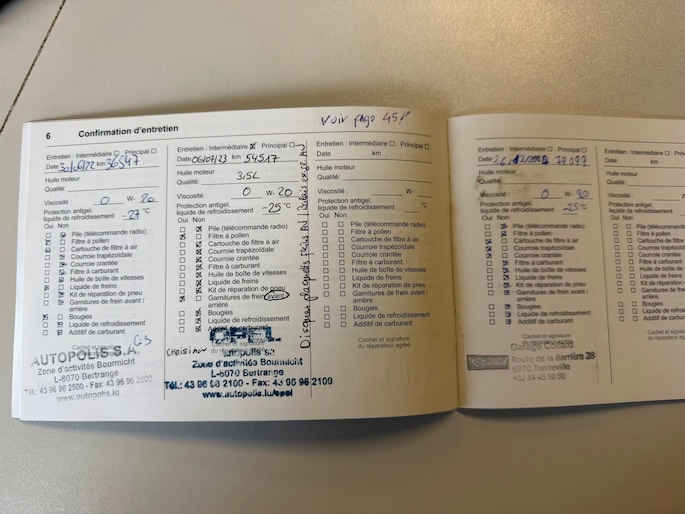 6 Confirmation d'entretien
Voir page 45!
Entretien : Intermédiaire Principal
Date 30/06/22 km 36547
Huile moteur
Qualité:
Viscosité : 0 W- 20
Protection antigel,
liquide de refroidissement -27 °C
Oui Non
Pile (télécommande radio)
Filtre à pollen
Cartouche de filtre à air
Courroie trapézoïdale
Courroie crantée
Filtre à carburant
Huile de boîte de vitesses
Liquide de freins
Kit de réparation de pneu
Garnitures de frein avant /
arrière
Bougies
Liquide de refroidissement
Additif de carburant
Cachet et signature
AUTOPOLIS S.A.
Zone d'activités Bourmicht
L-8070 Bertrange
Tél.: 43 96 96 2500 - Fax: 43 96 96
www.autopolis.lu
Entretien : Intermédiaire Principal
Date 06/07/23 km 54517
Huile moteur
Qualité: 3,5L
Viscosité : 0 W- 20
Protection antigel,
liquide de refroidissement -25 °C
Oui Non
Pile (télécommande radio)
Filtre à pollen
Cartouche de filtre à air
Courroie trapézoïdale
Courroie crantée
Filtre à carburant
Huile de boîte de vitesses
Liquide de freins
Kit de réparation de pneu
Garnitures de frein avant /
arrière
Bougies
Liquide de refroidissement
Additif de carburant
OPEL
autopolis sa
Zone d'activités Bourmicht
L-8070 Bertrange
Tél.: 43 96 96 2100 - Fax: 43 96 96 2109
www.autopolis.lu/opel
Disques plaquettes
Entretien : Intermédiaire Principal
Date km
Huile moteur
Qualité:
Viscosité : W-
Protection antigel,
liquide de refroidissement °C
Oui Non
Pile (télécommande radio)
Filtre à pollen
Cartouche de filtre à air
Courroie trapézoïdale
Courroie crantée
Filtre à carburant
Huile de boîte de vitesses
Liquide de freins
Kit de réparation de pneu
Garnitures de frein avant /
arrière
Bougies
Liquide de refroidissement
Additif de carburant
Cachet et signature
du réparateur agréé
Entretien : Intermédiaire Principal
Date km
Huile moteur
Qualité:
Viscosité : 0 W-
Protection antigel,
liquide de refroidissement -25 °C
Oui Non
Pile (télécommande radio)
Filtre à pollen
Cartouche de filtre à air
Courroie trapézoïdale
Courroie crantée
Filtre à carburant
Huile de boîte de vitesses
Liquide de freins
Kit de réparation de pneu
Garnitures de frein avant /
arrière
Bougies
Liquide de refroidissement
Additif de carburant
Cachet et signature
du réparateur agréé
Garage Collard
Route de la Barrière 28
6970 Tenneville
Entretien : Intermédiaire
Date
Huile moteur
Qualité:
Viscosité :
Protection antigel,
liquide de refroidissement
Oui Non
Pile (télécommande
Filtre à pollen
Cartouche de filtre à
Courroie trapézoïdale
Courroie crantée
Filtre à carburant
Huile de boîte de
Liquide de freins
Kit de réparation de
Garnitures de frein
arrière
Bougies
Liquide de
Additif de carburant
Cachet et
du réparateur